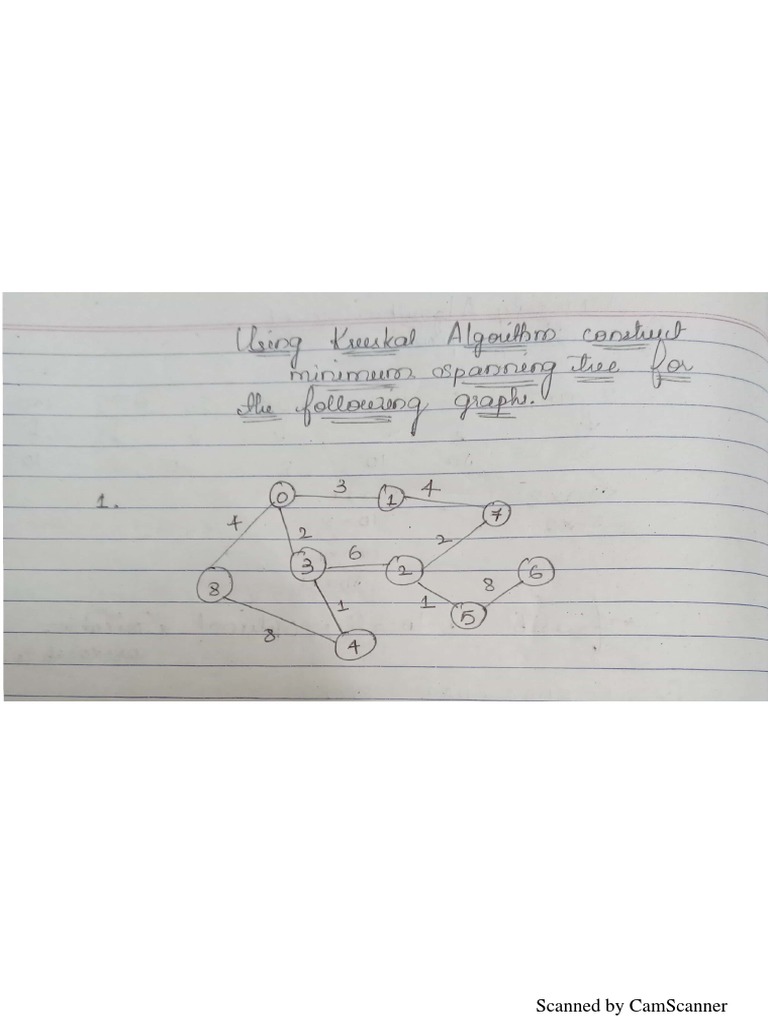 Using Kruskal Algorithm construct
minimum spanning tree for
the following graph.
1.
0 3 1 4 7
4 2 6 2
8 3 2 8 6
1 1 5
8 4
Scanned by CamScanner